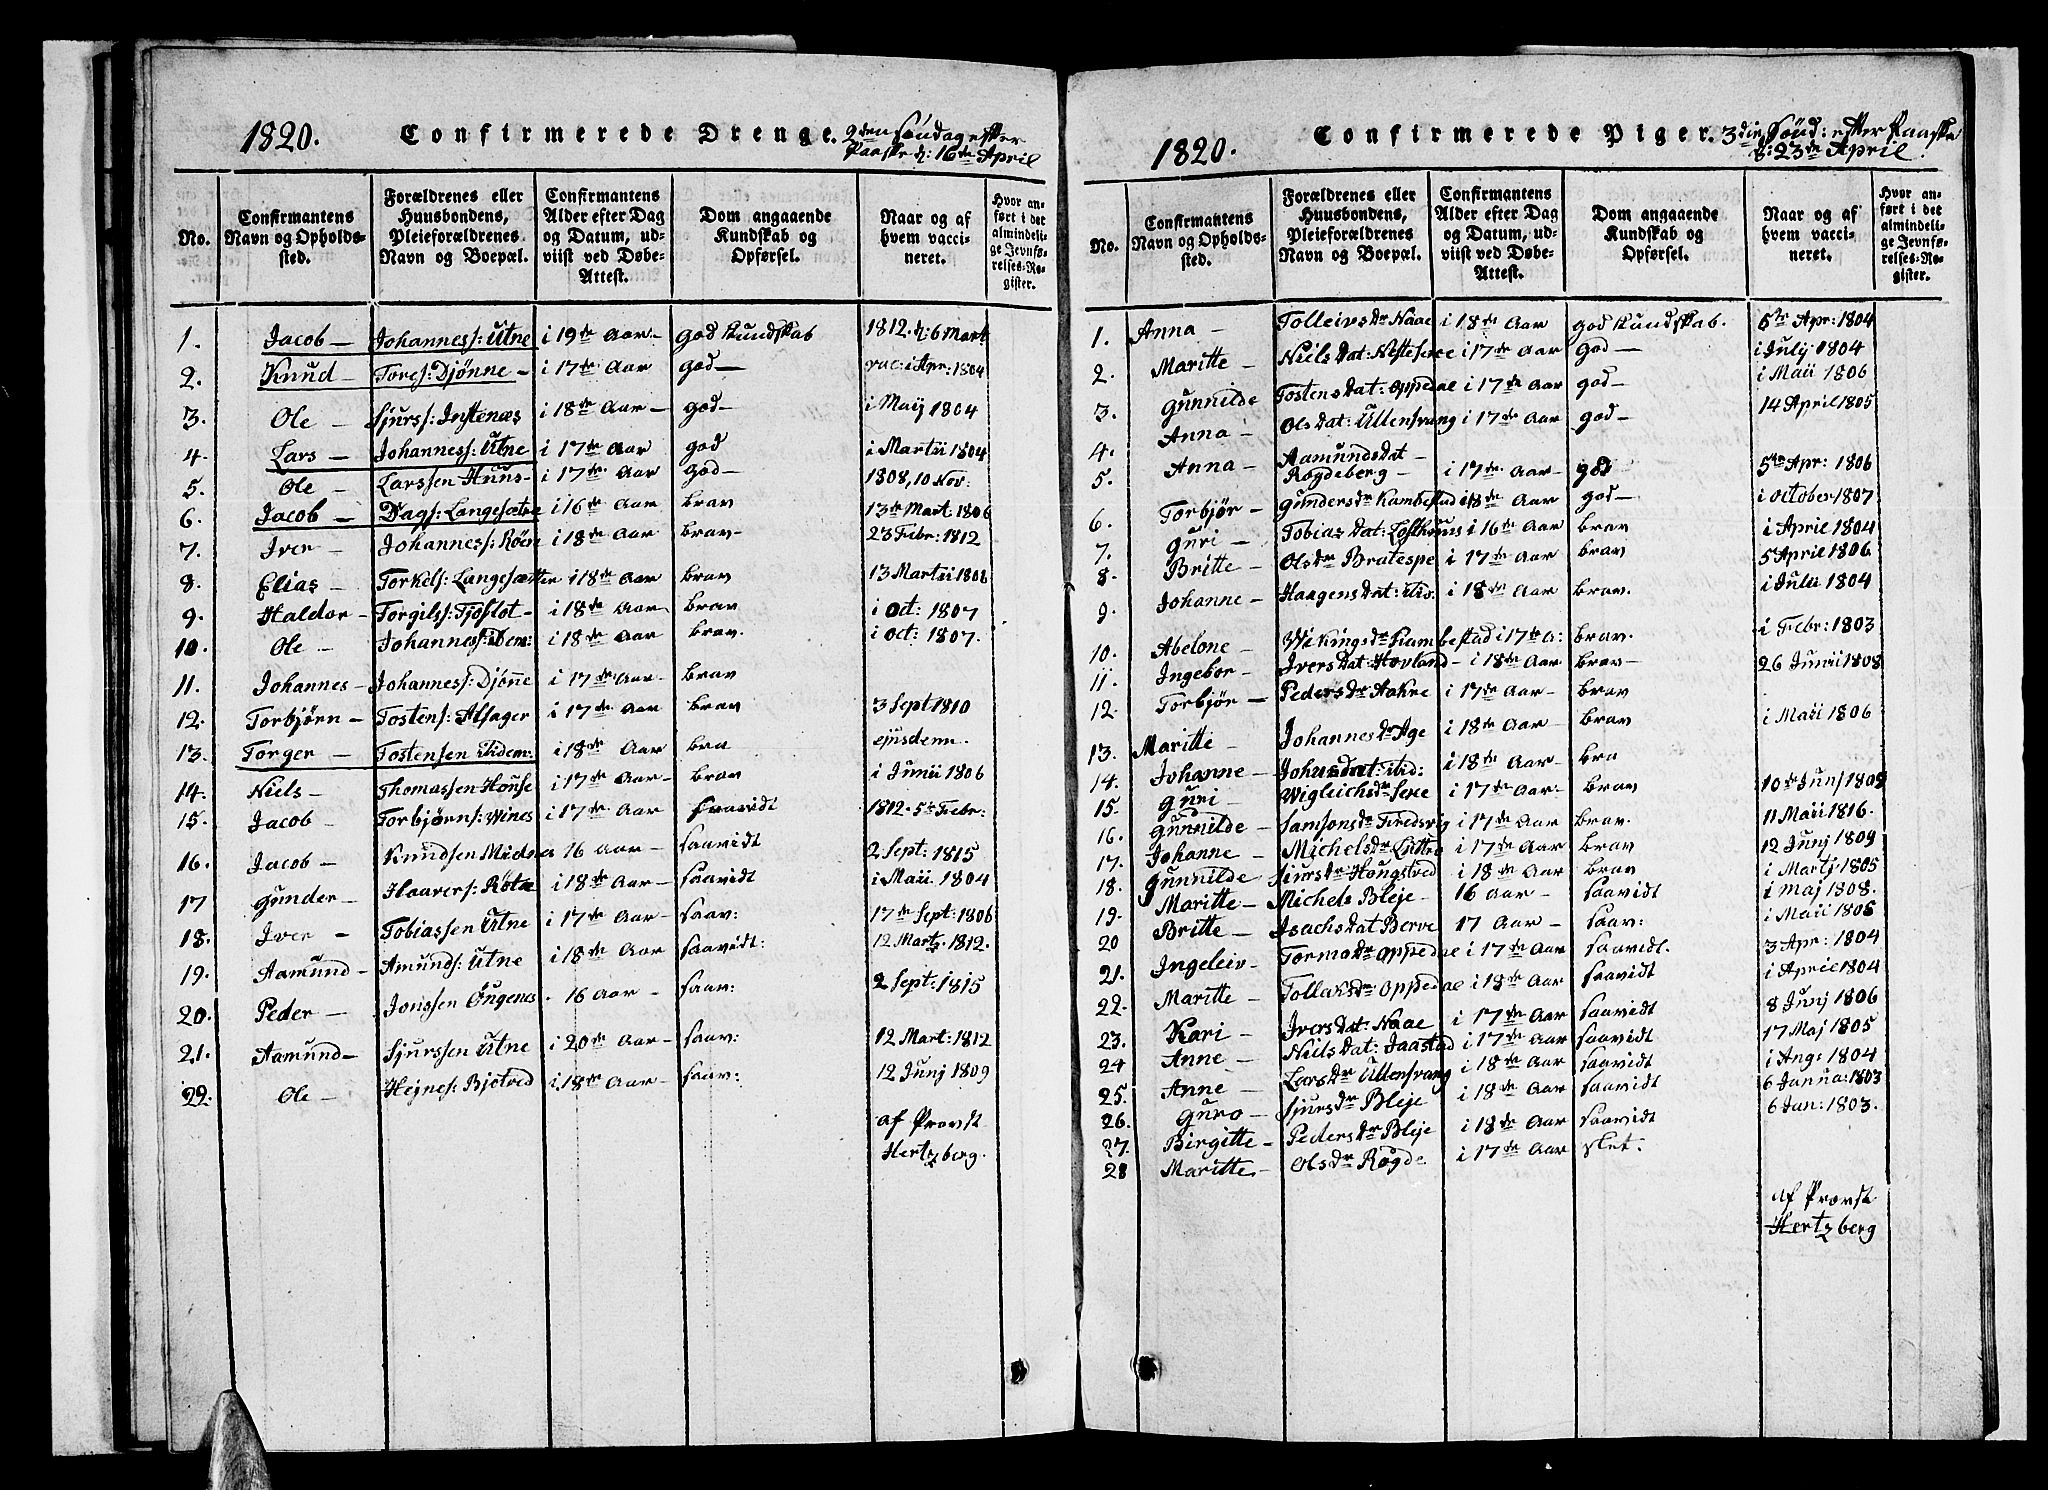 1820. Confirmerede Drenge. 2den Søndag efter
Paaske d: 16de April
No.
Confirmantens Navn og Opholds-sted.
Forældrenes eller Huusbondens, Pleieforældrenes Navn og Boepæl.
Confirmantens Alder efter Dag og Datum, ud-viist ved Døbe-Attest.
Dom angaaende Kundskab og Opførsel.
Naar og af hvem vacci-neret.
Hvor an-ført i det almindeli-ge Jevnfø-relses-Re-gister.
1. Jacob — Johanness: Utne i 19de Aar — god Kundskab 1812. d: 6 Mart
2. Knud — Tores: Djønne — i 17de Aar god — vac: i Apr: 1804
3. Ole — Sjurss: Jystenæs i 18de Aar — god — i Maij 1804
4. Lars — Johanness: Utne i 17de Aar god i Martii 1804
5. Ole — Larssen Huus — i 17de Aar god — 1808, 10 Nov:
6. Jacob — Dags: Langesætre i 16de Aar brav 13de Mart: 1806
7. Iver — Johanness: Røen i 18de Aar brav — 23 Febr: 1812
8. Elias — Torkels: Langesætter i 18de Aar brav 13 Martii 1808
9. Haldor — Torgils: Tjoflot — i 18de Aar brav i Oct: 1807
10. Ole — Johanness: ibdem: i 18de Aar brav. i Oct: 1807.
11. Johannes — Johanness: Djønne i 17de Aar — brav
12. Torbjørn — Tostens: Alsager i 17de Aar brav 3 Sept 1810
13. Torger — Tostensen ibidem: i 18de Aar bra ejusdem.
14. Niels — Thomassen House i 17de Aar — brav i Junii 1806
15. Jacob — Torbjørns: Wines i 17de Aar saavidt 1812. 5te Febr:
16. Jacob — Knudsen Midnæs 16 Aar — saavidt 2 Sept: 1815
17 Gunder — Haavers: Røtæ i 18de Aar — saavidt i Maii 1804
18. Iver — Tobiassen Utne i 17de Aar — saav: 17de Sept: 1806
19. Aamund — Amunds: Utne i 18de Aar saavidt: 12 Marty 1812.
20. Peder — Jonssen Ougenes. 16 Aar — saav: 2 Sept: 1815
21. Aamund — Sjurssen Utne i 20de Aar — saav: 12 Mart: 1812
22. Ole — Hejnes: Bjotved i 18de Aar — saav: 12 Junj 1809
af Provst
Hertzberg.
1820. Confirmerede Piger. 3die Sønd: efter Paaske
d: 23de April.
No.
Confirmantens Navn og Opholds-sted.
Forældrenes eller Huusbondens, Pleieforældrenes Navn og Boepæl.
Confirmantens Alder efter Dag og Datum, ud-viist ved Døbe-Attest.
Dom angaaende Kundskab og Opførsel.
Naar og af hvem vacci-neret.
Hvor an-ført i det almindeli-ge Jevnfø-relses-Re-gister.
1. Anna — Tolleivsdr Naae i 18de Aar god Kundskab. 5te Apr: 1804
2. Maritte — Niels Dat: i 17de Aar god — i Julij 1804
3. Gunnilde Tostens Dat: Oppedal i 17de Aar god — i Maii 1806
4. Anna — Ols Dat: Ullensvang i 17de Aar god — 14 April 1805
5. Anna — Aamundsdat — Rogdeberg — i 17de Aar god 5te Apr: 1806
6. Torbjør — Gundersdr Kambestad i 18de Aar god — i October 1807
7. Guri — Tobias Dat: Lofthuus i 16de Aar brav i April 1804
8. Britte — Olsdr Bratespe i 17de Aar brav 5 April 1806
9. Johanne — Haagens Dat: ibid. i 18de Aar brav. i Julii 1804
10. Abelone — Wikingsdr Kambestad i 17de A: brav. i Febr: 1803
11. Ingebor — Ivers Dat: Hovland — i 18de Aar brav — 26 Junii 1808
12. Torbjør — Pedersdr Aakre i 17de Aar — brav
13. Maritte — Johannesdr Age i 18de Aar — brav i Maii 1806
14. Johanne — dat: ibid: i 18de Aar — bra
15. Guri — Wigleichsdr Sexe i 17de Aar — brav 10de Junj 1809
16. Gunnilde — Samsonsdr Fredsvig i 17de Aar brav. 11 Maii 1816.
17. Johanne — Michelsdr Luttro i 17de Aar — brav 12 Junj 1809
18. Gunnilde Siursdr Hougstved i 18de Aar brav i Martj 1805
19. Maritte — Michels Bleje — 16 Aar — saavidt i Maj 1808.
20 Britte — Isachs Dat Berve 17 Aar — saav: i Maii 1805
21. Ingeleiv — Tormodr Oppedal i 17de Aar saavidt. 3 Apr: 1804
22. Maritte — Tollaksdr Oppedal i 18de Aar saavidt i April 1804
23. Kari — Ivers Dat: Naae i 17de Aar saavidt 8 Junj 1806
24 Anne — Niels Dat: Jaastad i 17de Aar saavidt 17 Maj 1805
25. Anne — Larsdr Ullensvang i 18de Aar saavidt i Aug: 1804
26. Guro — Sjursdr Bleje i 18de Aar saavidt 6 Janua: 1803
27. Birgitte — Pedersdr Bleje i 18de Aar saavidt 6 Jan: 1803.
28 Maritte — Olsdr Røgde i 17de Aar slet.
af Provst
Hertzberg